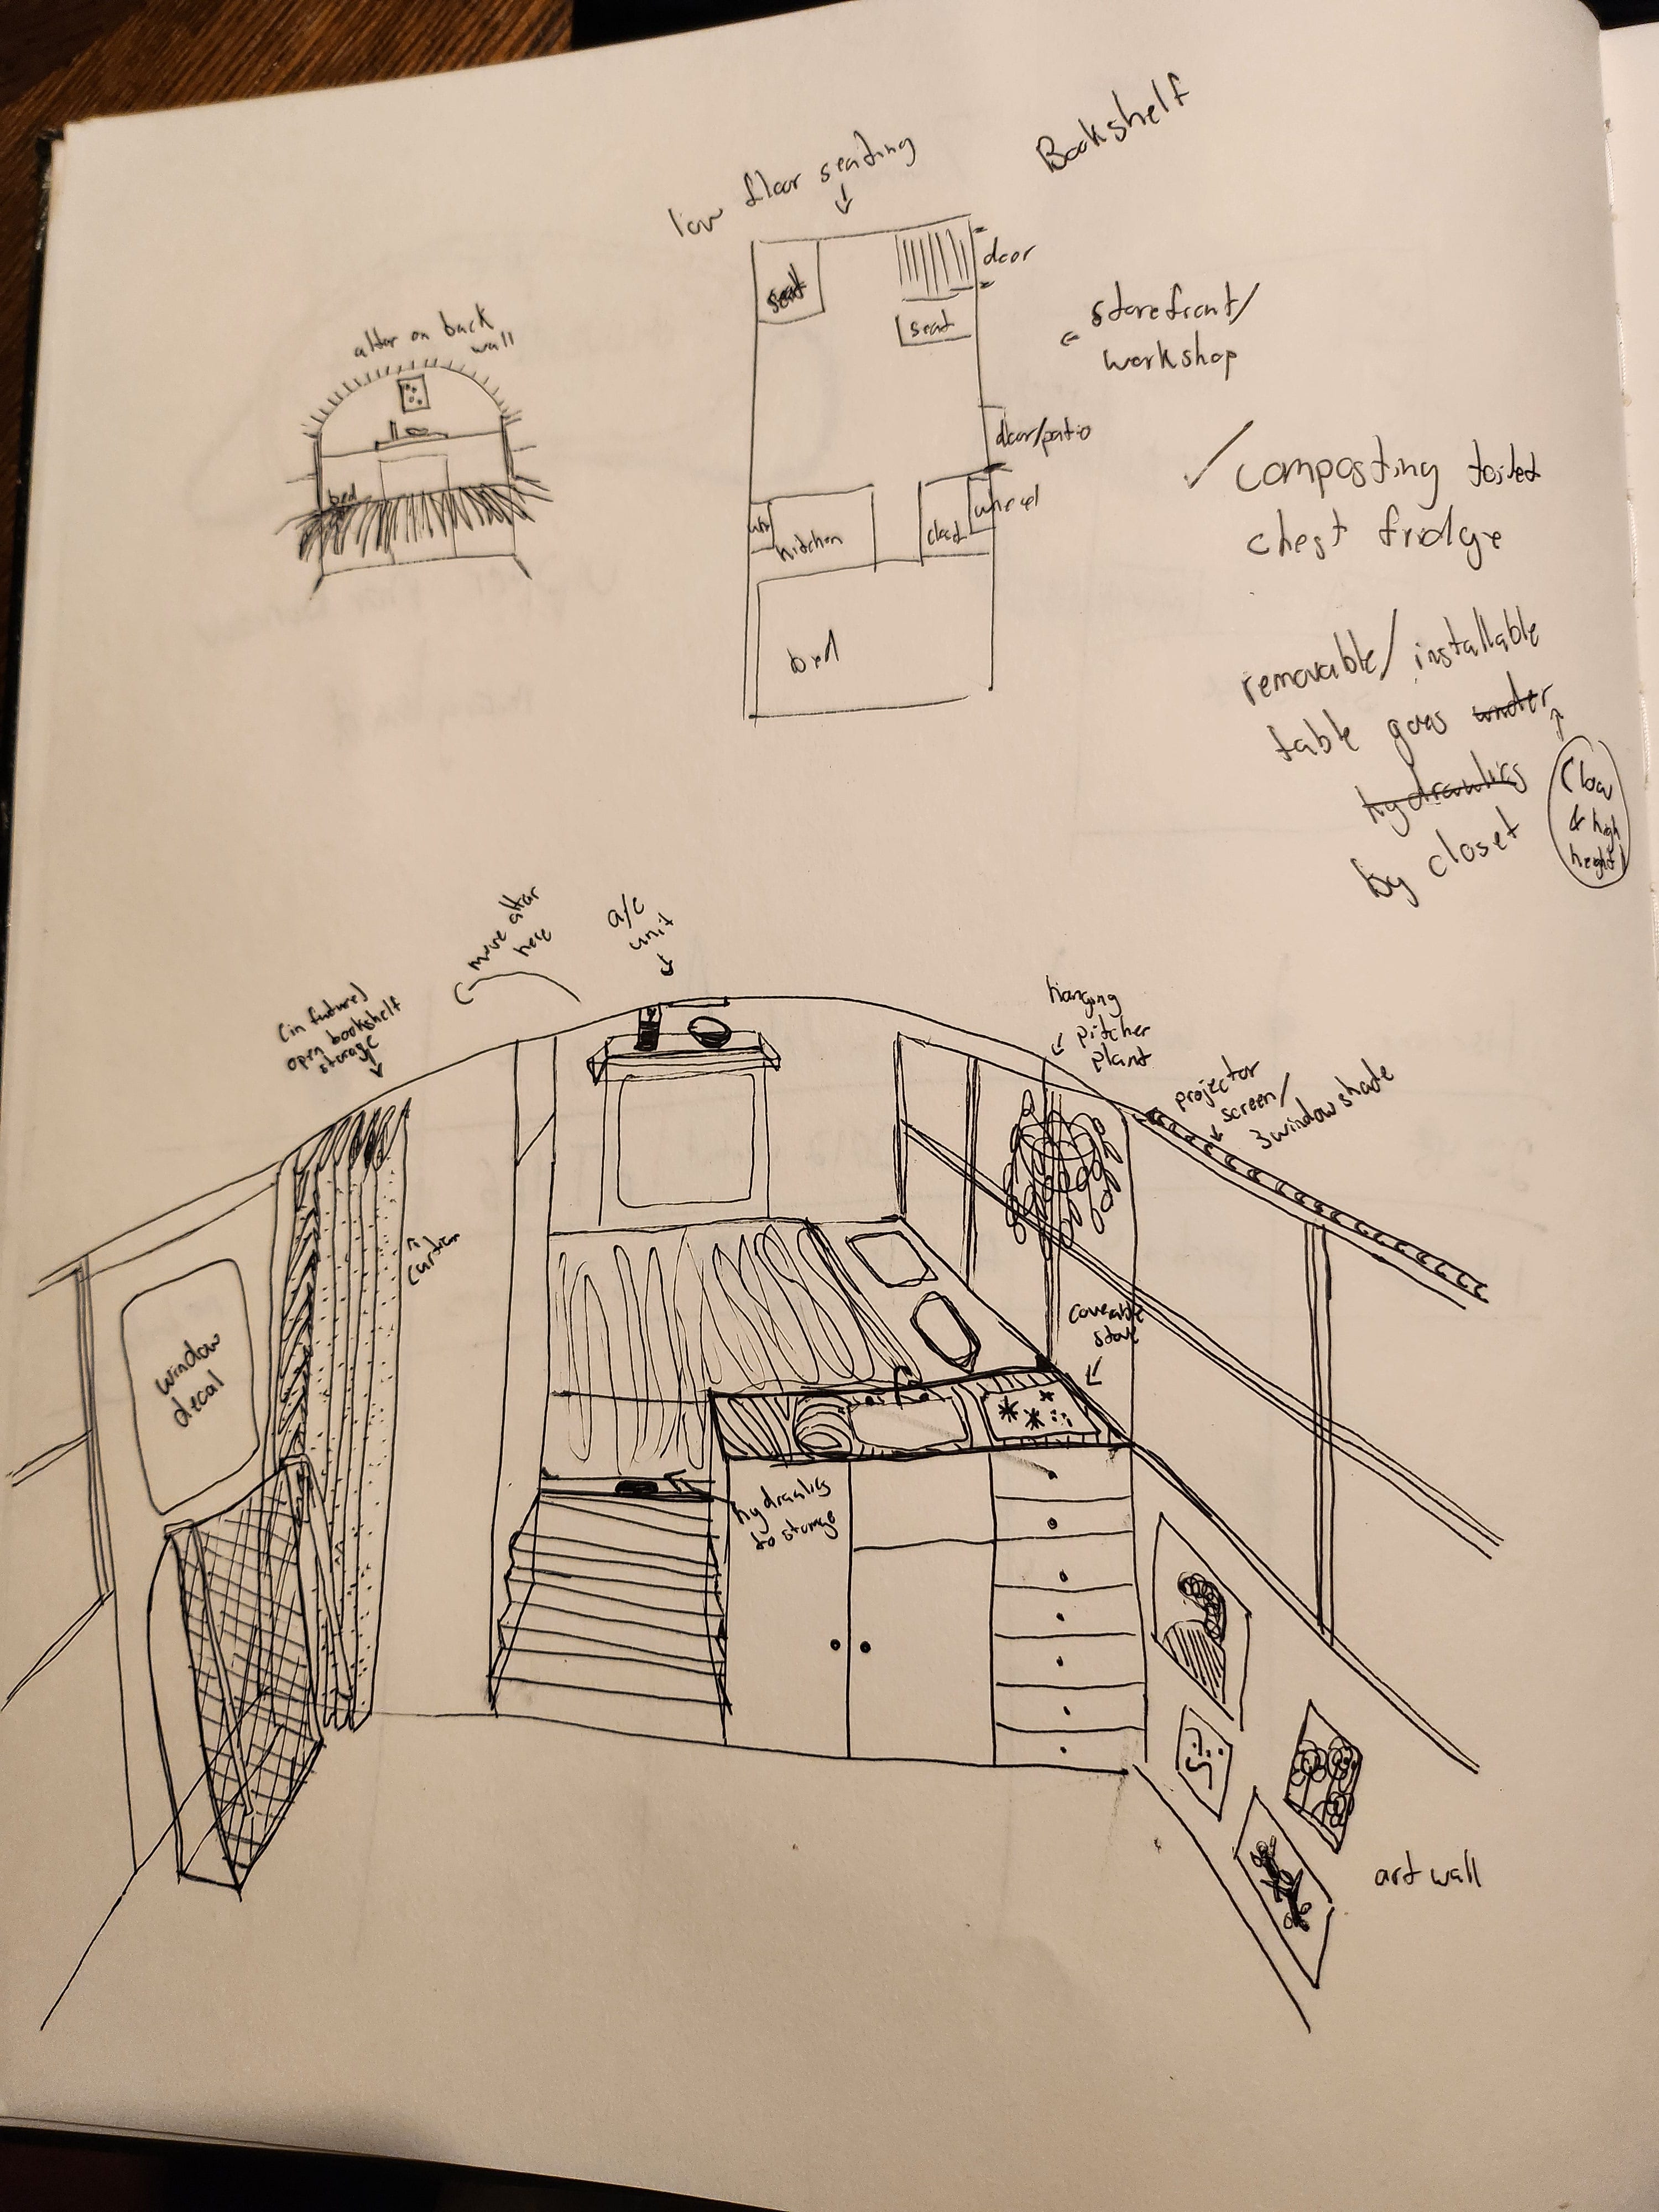 Bookshelf
low floor seating
door
seat
seat
storefront/
workshop
altar on back
wall
bed
door/patio
wheel
kitchen
closet
bed
✓ composting toilet
chest fridge
removable/installable
table goes under
hydraulics
by closet
(low
& high
height)
move altar
here
a/c
unit
(in future)
open bookshelf
storage
hanging
pitcher
plant
projector
screen/
window shade
curtain
window
decal
coverable
stove
hydraulics
to storage
art wall